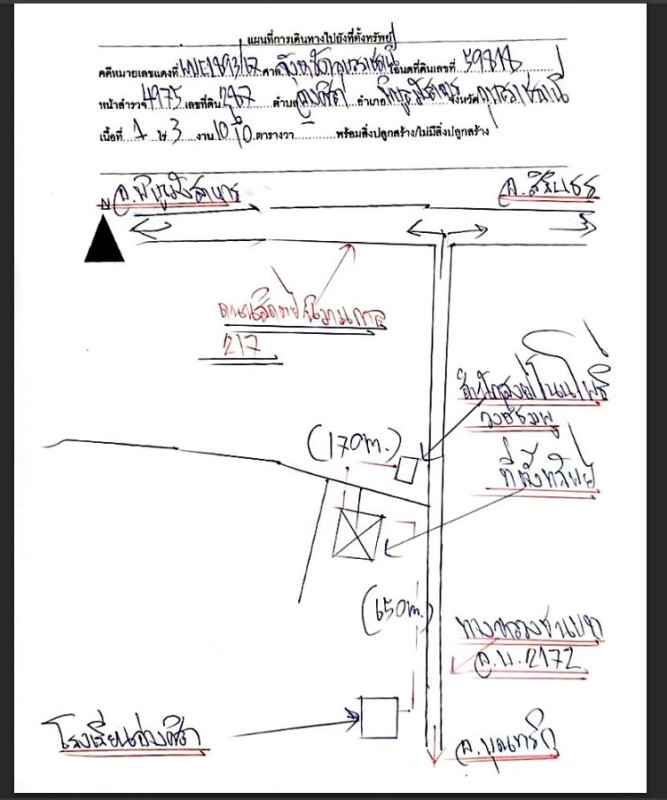 แผนที่การเดินทางไปยังที่ตั้งทรัพย์
คดีหมายเลขแดงที่ ศาล จังหวัดอุบลราชธานี โฉนดที่ดินเลขที่ 59818
หน้าสำรวจ 4975 เลขที่ดิน 287 ตำบล อ่างศิลา อำเภอ พิบูลมังสาหาร จังหวัด อุบลราชธานี
เนื้อที่ 1 ไร่ 3 งาน 10 ตารางวา พร้อมสิ่งปลูกสร้าง/ไม่มีสิ่งปลูกสร้าง
N อ.พิบูลมังสาหาร
อ.สิรินธร
217
(170m.)
ที่ตั้งทรัพย์
(650m.)
ทางหลวงชนบท
อ.บ. 2172
โรงเรียนอ่างศิลา
อ.บุณฑริก